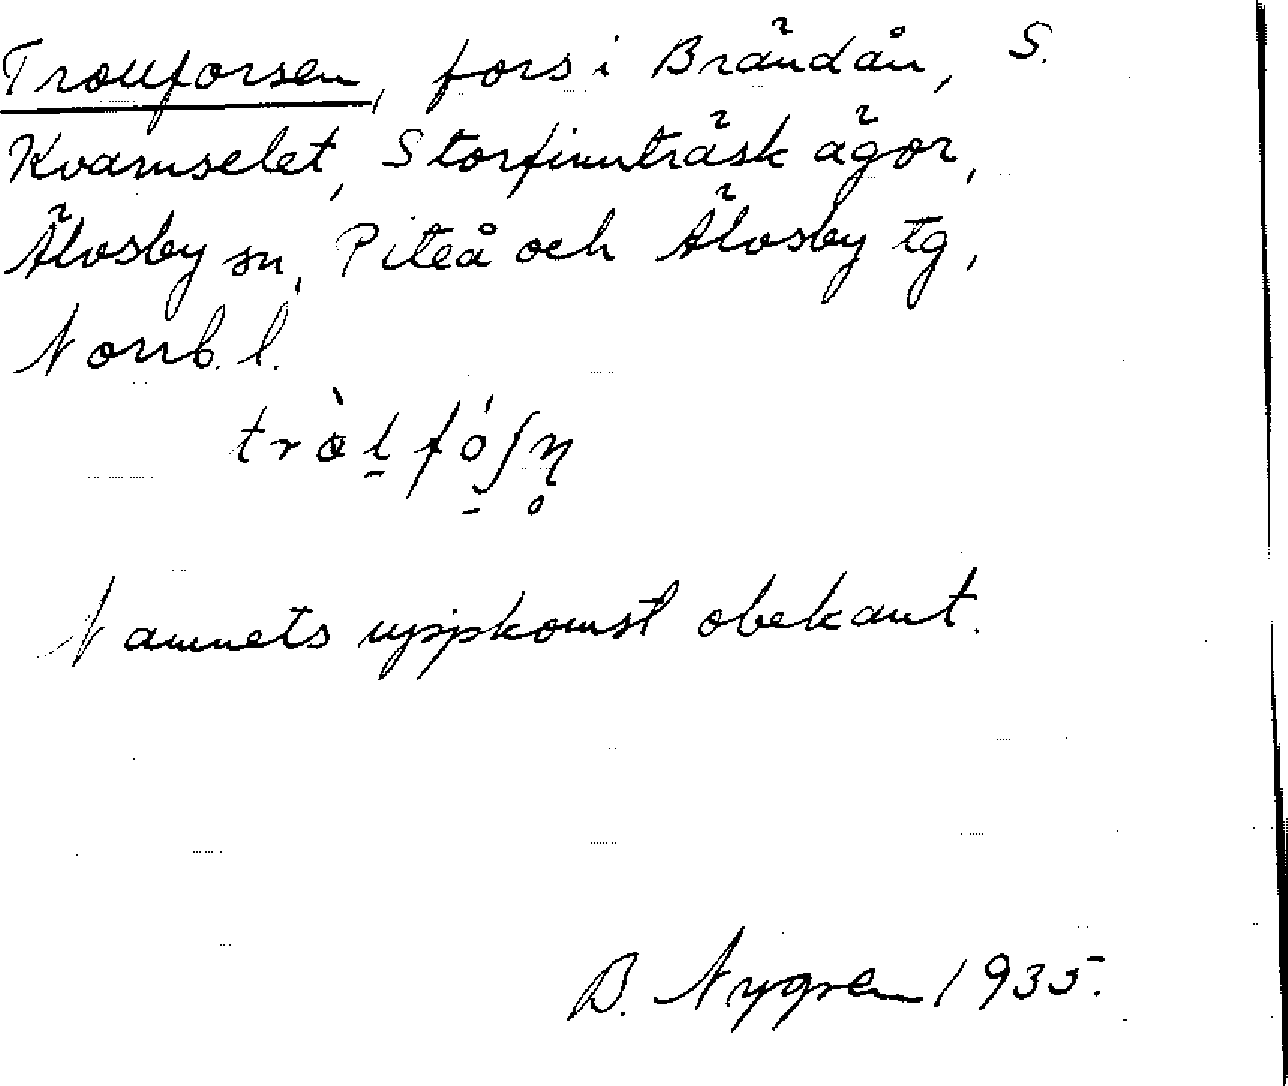 Trollforsen, fors i Brändån, S.
Kvarnselet, Storfinnträsk ägor,
Älvsby sn, Piteå och Älvsby tg,
Norrb. l.
tròl̠ fó̠ʃn̥
Namnets uppkomst obekant.
B. Nygren 1935.